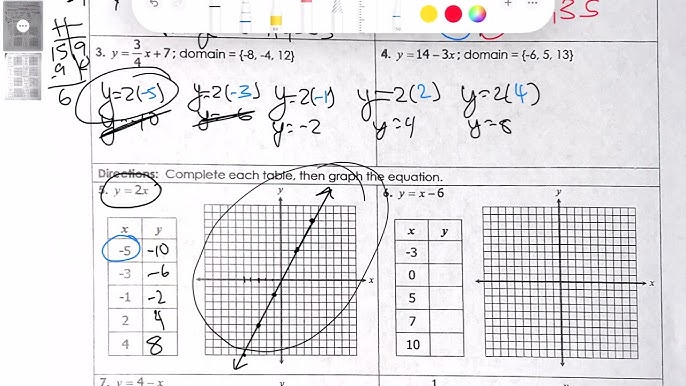 35
11
159
-9
6
3. y = 3/4 x + 7 ; domain = {-8, -4, 12}
4. y = 14 – 3x ; domain = {-6, 5, 13}
y=2(-5) y=2(-3) y=2(-1) y=2(2) y=2(4)
y=-10 y=-6 y=-2 y=4 y=8
Directions: Complete each table, then graph the equation.
5. y = 2x
x y
-5 -10
-3 -6
-1 -2
2 4
4 8
y
x
6. y = x – 6
x y
-3
0
5
7
10
y
x
7. y = 4 – x
y
1
y